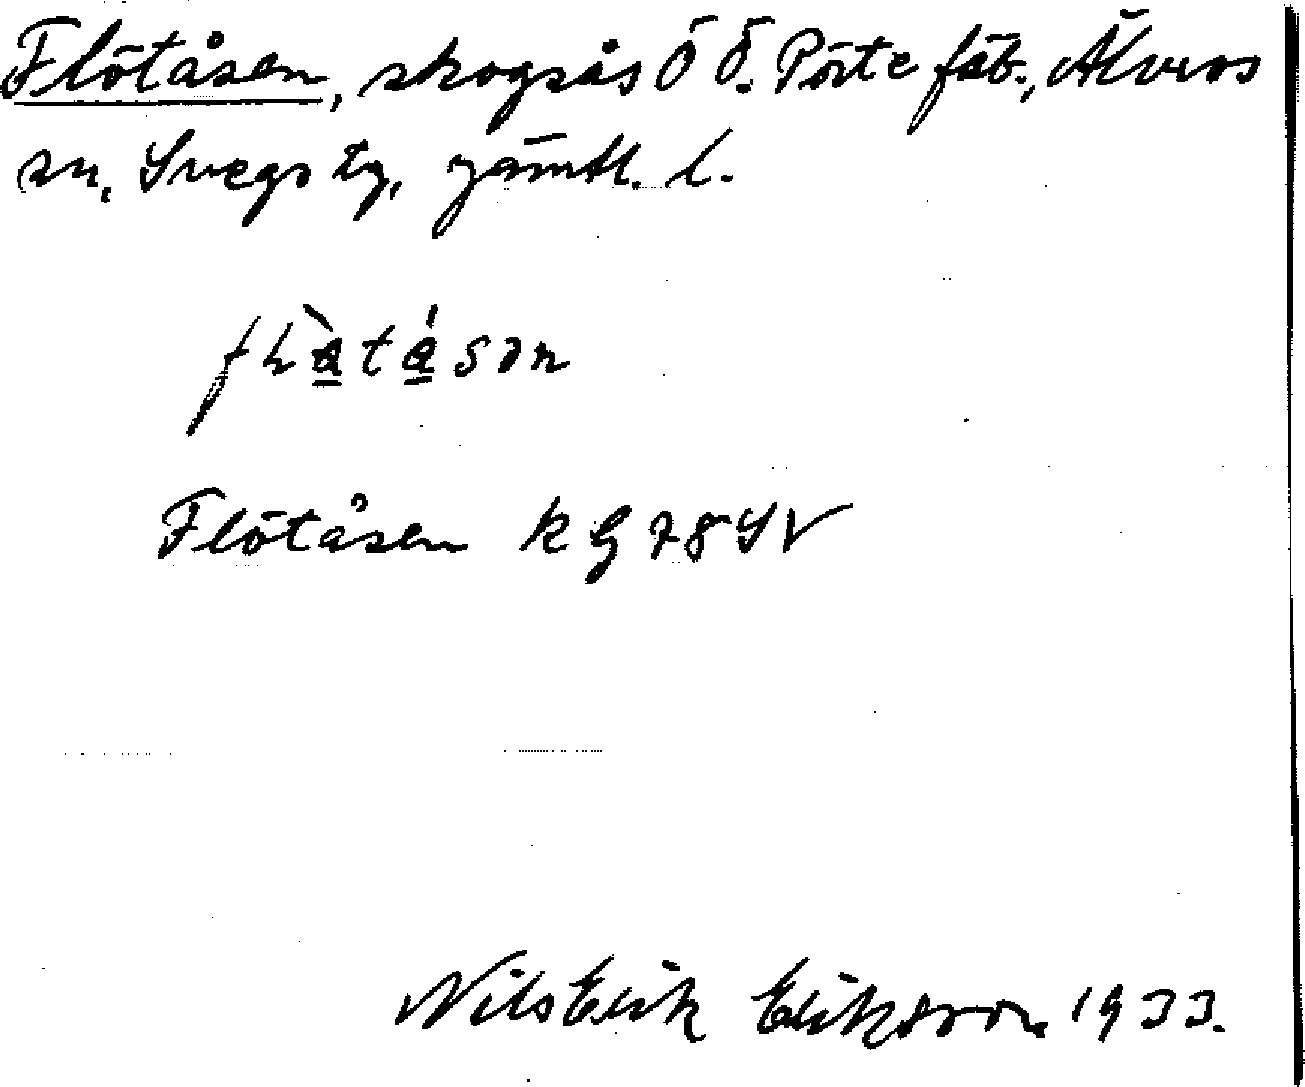 Flötåsen, skogsås Ö Ö. Pörte fäb., Älvros
sn, Svegs tg, Jämtl. l.
Flötåsen k G 78 SV
Nils Erik Eriksson 1933.